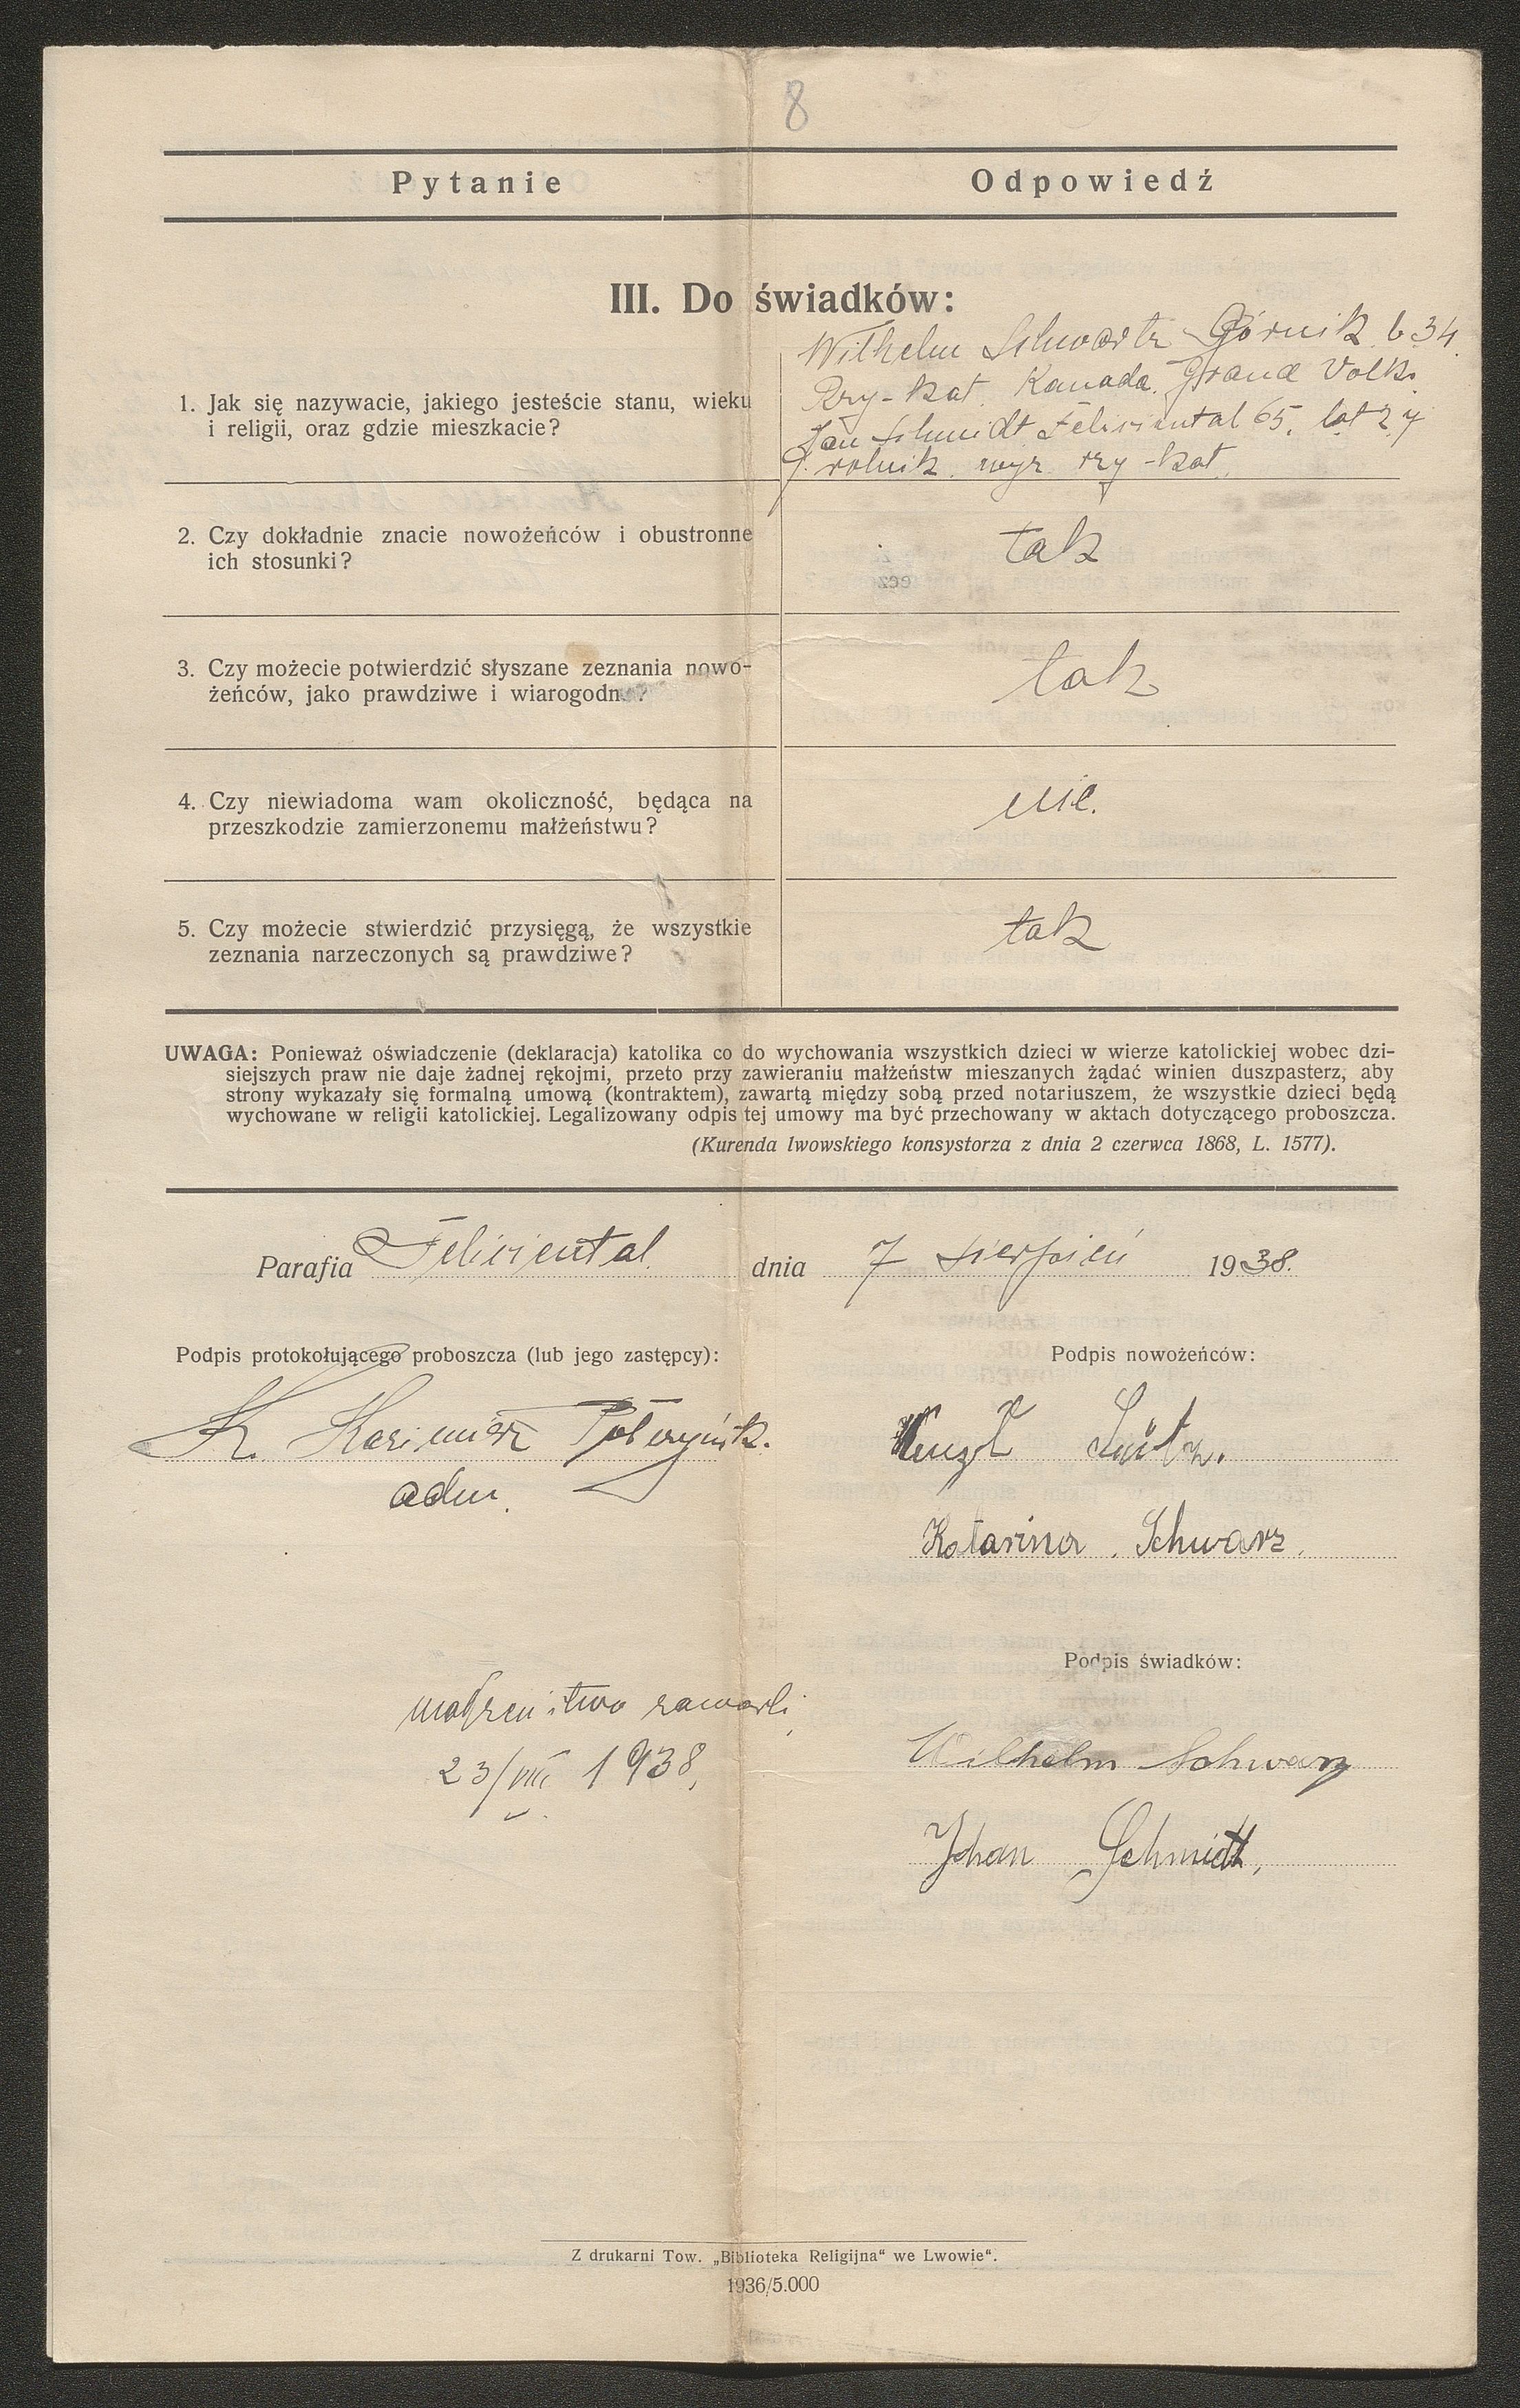 8
Pytanie Odpowiedź
III. Do świadków:
Wilhelm Schwartz Górnik l. 34.
Rzy-kat. Kanada. Grand Volk.
1. Jak się nazywacie, jakiego jesteście stanu, wieku
i religii, oraz gdzie mieszkacie?
Jan Schmidt Feliciental 65. lat 27
rolnik wyz. rzy-kat.
2. Czy dokładnie znacie nowożeńców i obustronne
ich stosunki?
tak
3. Czy możecie potwierdzić słyszane zeznania nowo-
żeńców, jako prawdziwe i wiarogodne?
tak
4. Czy niewiadoma wam okoliczność, będąca na
przeszkodzie zamierzonemu małżeństwu?
nie.
5. Czy możecie stwierdzić przysięgą, że wszystkie
zeznania narzeczonych są prawdziwe?
tak
UWAGA: Ponieważ oświadczenie (deklaracja) katolika co do wychowania wszystkich dzieci w wierze katolickiej wobec dzi-
siejszych praw nie daje żadnej rękojmi, przeto przy zawieraniu małżeństw mieszanych żądać winien duszpasterz, aby
strony wykazały się formalną umową (kontraktem), zawartą między sobą przed notariuszem, że wszystkie dzieci będą
wychowane w religii katolickiej. Legalizowany odpis tej umowy ma być przechowany w aktach dotyczącego proboszcza.
(Kurenda lwowskiego konsystorza z dnia 2 czerwca 1868, L. 1577).
Parafia Feliciental. dnia 7 sierpień 1938.
Podpis protokołującego proboszcza (lub jego zastępcy): Podpis nowożeńców:
X. Kazimierz
adm.
Katarina Schwarz.
Podpis świadków:
małżeństwo zawarli
23/VIII 1938,
Wilhelm Schwarz
Johan Schmidt,
Z drukarni Tow. „Biblioteka Religijna“ we Lwowie“.
1936/5.000